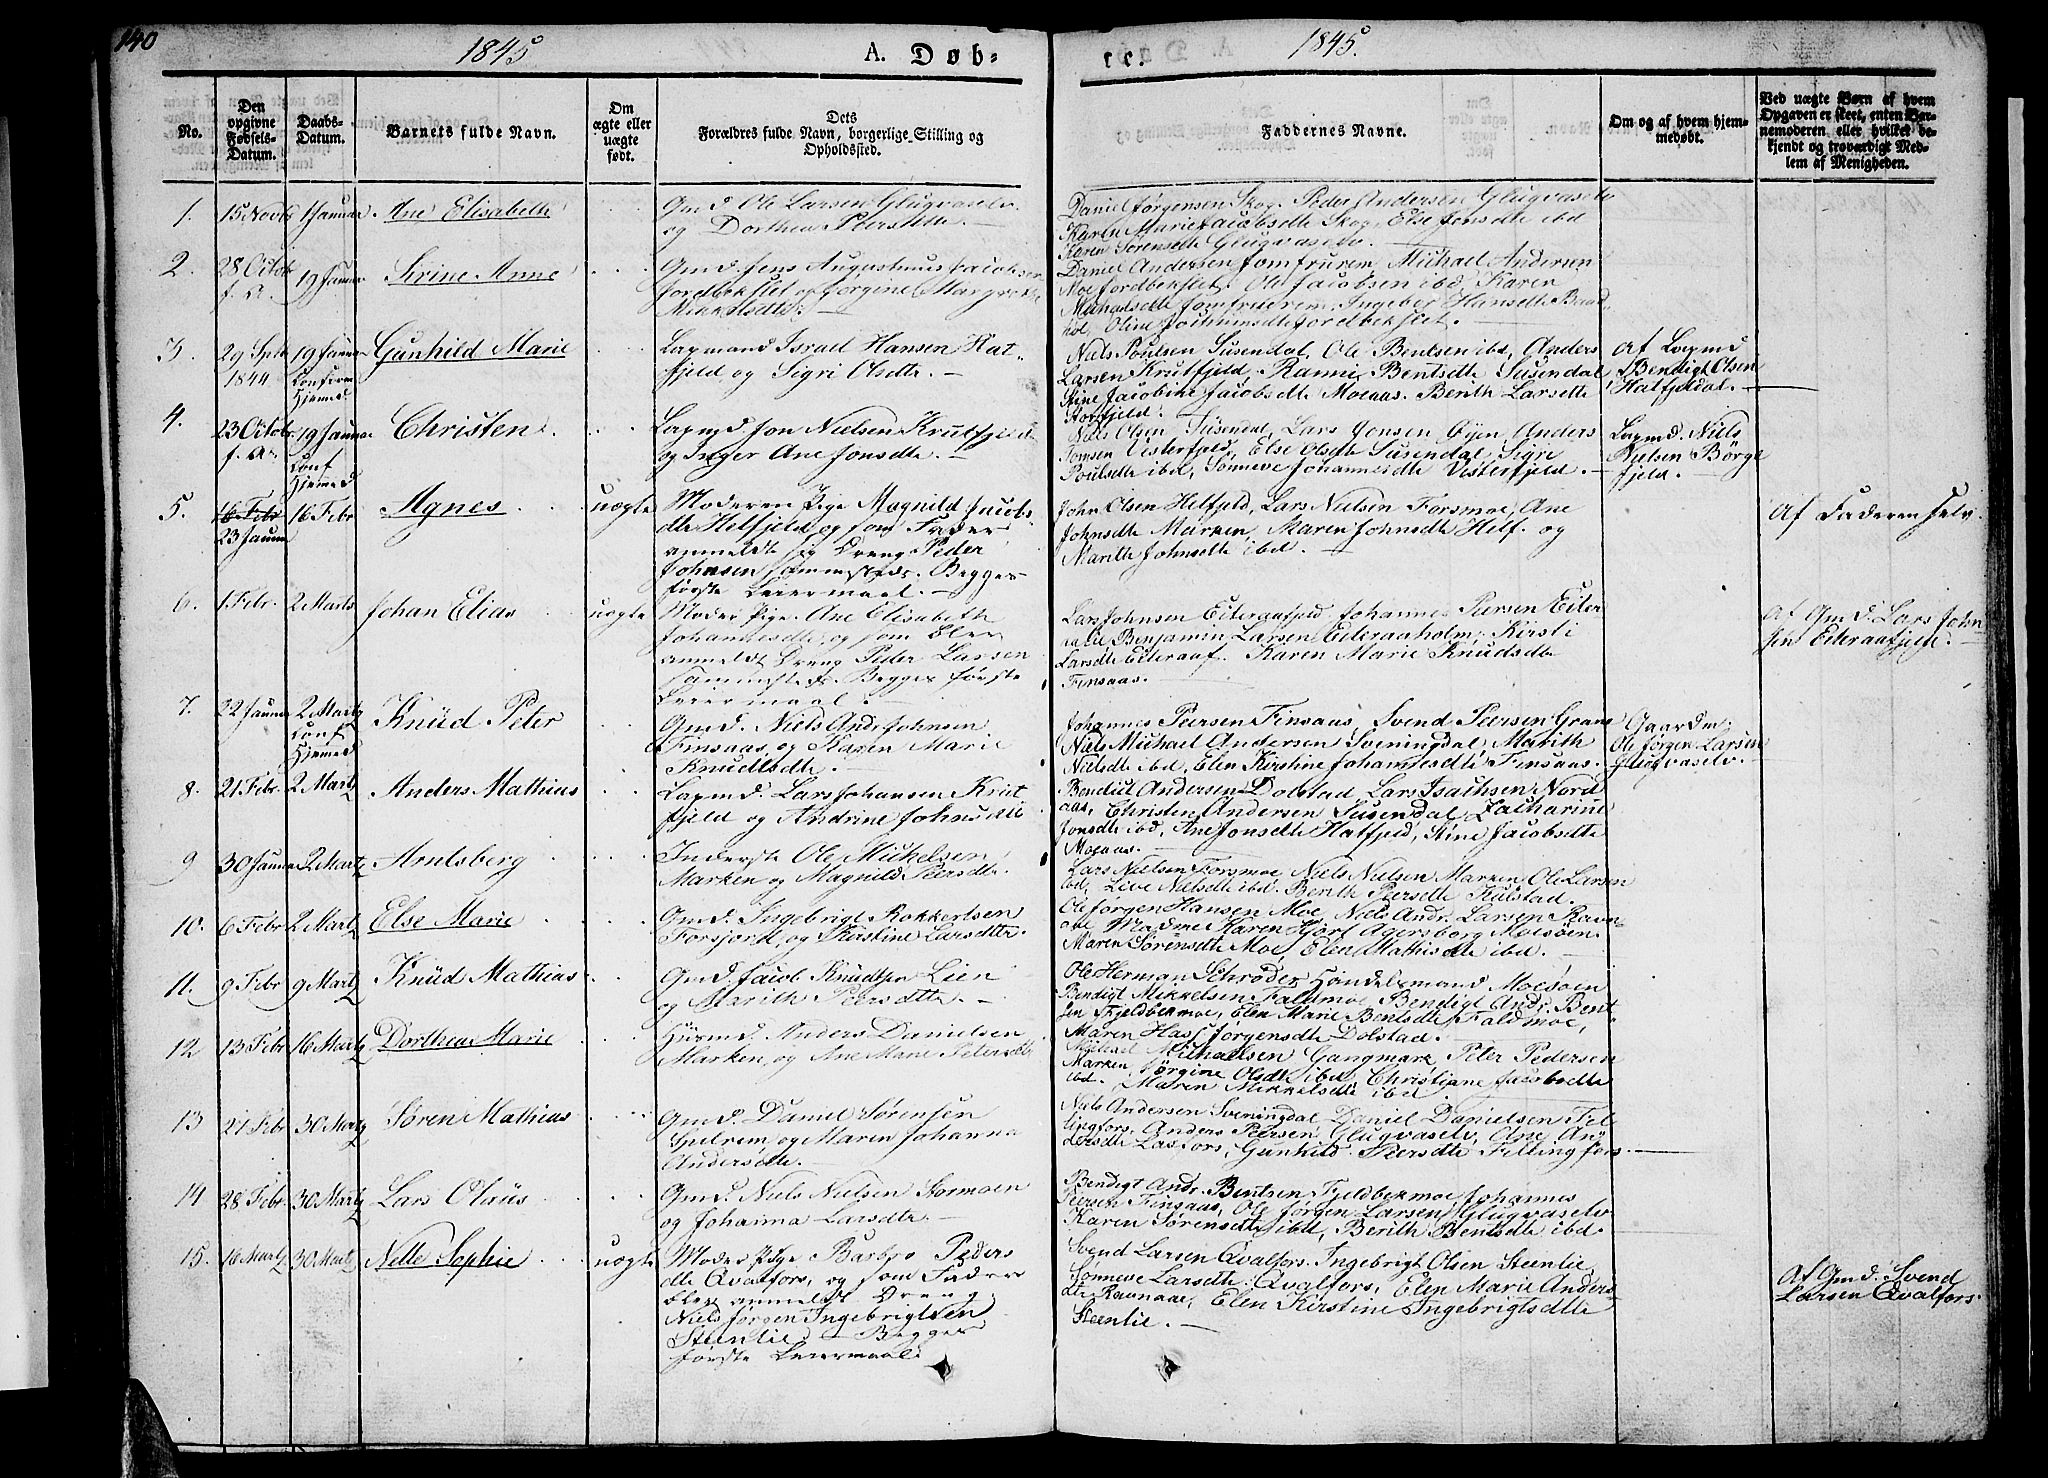 140
1845
A. Døb-
te.
1845.
No.
Den
opgivne
Fødsels-
Datum.
Daabs-
Datum.
Barnets fulde Navn.
Om
ægte eller
uægte
født.
Dets
Forældres fulde Navn, borgerlige Stilling og
Opholdssted.
Faddernes Navne.
Om og af hvem hjem-
medøbt.
Ved uægte Børn af hvem
Opgaven er skeet, enten Bar-
nemoderen eller hvilket be-
kjendt og troværdigt Med-
lem af Menigheden.
1. 15 Novb 1 Januar Ane Elisabeth
Gmd. Ole Larsen Glugvaselv
og Dorthea Peersdtr. —
Daniel Jørgensen Skog, Peder Andersen Glugvaselv
Karen Marie Jacobsdtr Skog, Else Jonsdtr ibd
Karen Sørensdtr Glugvaselv.
2. 28 Octob f. A. 19 Januar Sirine Anne
Gmd. Jens Augustinus Jacobsen
Jordbekslet og Jørgine Margrethe
Mikkelsdtr. —
Daniel Andersen Jomfrurem, Michael Andersen
Moe Jordbekslet, Ole Jacobsen ibd, Karen
Jomfruerem, Ingeber Hansdtr
Oline Jordbekslet.
3. 29 Spb 1844 19 Januar Conf. Hjemmed Gunhild Marie
Lapmand Israel Hansen Hat-
fjeld, og Sigri Olsdtr. —
Niels Poulsen Susendal, Ole Bentsen ibd, Anders
Larsen Krutfjeld, Ranni Bentsdtr Susendal,
Stine Jacobine Jacobsdtr Moeaas. Berith Larsdtr
Storfjeld.
Af Lapmd
Bendigt Olsen
Hatfjeldal. —
4. 23 Octobr f. A. 19 Januar Conf Hjemmed Christen
Lapmd. Jon Nielsen Krutfjeld
og Inger Ane Jonsdtr. —
Niels Olsen Susendal, Lars Jonsen Øyen, Anders
Tomsen Visterfjeld, Else Olsdtr Susendal, Sigri
Poulsdtr ibd, Sønneve Johannesdtr Visterfjeld. —
Lapmd. Niels
Nielsen Børge
fjeld.
5. 16 Febr 23 Januar 16 Febr Agnes uægte
Moderen Pige Magnild Jacobs-
dtr Helfjeld, og som Fader
anmeldt sig Dreng Peder
Johnsen sammesteds. Begges
første Leiermaal. —
John Olsen Helfjeld, Lars Nielsen Forsmoe, Ane
Johnsdtr Marken, Maren Johnsdtr Helf. og
Marith Johnsdtr ibd. —
Af Faderen selv.
6. 1 Febr. 2 Marts Johan Elias uægte
Moder Pige Ane Elisabeth
Johannesdtr, og som blev
anmeldt Dreng Peder Larsen
sammesteds. Begges første
Leiermaal. —
Lars Johnsen Eiteraafjeld, Johannes Peersen Eiter-
Benjamin Larsen Eiteraaholm, Kirsti
Larsdtr Eiteraaf. Karen Marie Knudsdtr
Finsaas. —
Af Gmd. Lars John-
sen Eiteraafjeld.
7. 22 Januar 2 Martz Conf Hjemmed Knud Peter
Gmd. Niels Andr. Johnsen
Finsaas, og Karen Marie
Knudsdtr. —
Johannes Peersen Finsaas, Svend Peersen Grane
Niels Michael Andersen Sveningdal, Marith
Nielsdtr ibd, Elen Kirstine Johannesdtr Finsaas. —
Gaardm.
Ole Jørgen Larsen
Glugvaselv.
8. 21 Febr. 2 Martz Anders Mathias
Lapmd. Lars Johansen Krut
fjeld og Andrine Johnsdtr
Bendict Andersen Dolstad Lars Isachsen Nord
aas, Christen Andersen Susendal, Zacharine
Jonsdtr ibd, Ane Jonsdtr Hatfjeld, Stine Jacobsdtr
Moeaas. —
9 30 Januar 2 Martz Arntsberg
Inderste Ole Michelsen
Marken og Magnild Peersdtr.
Lars Nielsen Forsmoe, Niels Nielsen Marken Ole Larsen
ibd, Live Nielsdtr ibd. Berith Peersdtr Kulstad.
10. 6 Febr 2 Martz Else Marie
Gmd. Ingebrigt Rokkertsen
Forsjord, og Kirstine Larsdtr.
Ole Jørgen Hansen Moe, Niels Andr. Larsen Ravn-
aae Madme Karen Hjort Agersborg Moesøen.
Maren Sørensdtr Moe, Elen Mathisdtr ibd. —
11. 9 Febr 9 Martz Knud Mathias
Gmd. Jacob Knudsen Lien
og Marith Peersdtr. —
Ole Herman Schrøder Handelsmand Moesøen
Bendigt Mikkelsen Faldmoe, Bendigt Andr. Bent
sen Fjeldbekmoe, Elen Marie Bentsdtr Faldmoe,
Maren Hass Jørgensdtr Dolstad. —
12 13 Febr 16 Martz Dorthea Marie
Huusmd. Anders Danielsen
Marken, og Ane Marie Petersdtr
Mikael Michaelsen Gangmark, Peter Pedersen
Marken, Jørgine Olsdtr ibd, Christiane Jacobsdtr
ibd. Maren Mikkelsdtr ibd.
13 27 Febr 30 Martz Søren Mathias
Gmd. Daniel Sørensen
og Maren Johanna
Andersdtr. —
Niels Andersen Sveningdal, Daniel Danielsen Fel-
lingfors, Anders Peersen Glugvaselv, Ane An-
dersdtr Lasfors, Gunhild Peersdtr Fellingfors. —
14 28 Febr. 30 Martz Lars Olaus
Gmd. Niels Nielsen Stormoen
og Johanna Larsdtr. —
Bendigt Andr. Bentsen Fjeldbekmoe, Johannes
Peersen Finsaas, Ole Jørgen Larsen Glugvaselv
Karen Sørensdtr ibd, Berith Bentsdtr ibd.
15. 16 Martz 30 Martz Nette Sophie uægte
Moder Pige Barbro Peders
dtr Qvalfors, og som Fader
blev anmeldt Dreng
Niels Jørgen Ingebrigtsen
Steenlie. — Begges
første Leiermaal.
Svend Larsen Qvalfors. Ingebrigt Olsen Steenlie,
Sønneve Larsdtr Qvalfors, Elen Marie Anders-
dtr Ravnaae, Elen Kirstine Ingebrigtsdtr
Steenlie. —
Af Gmd. Svend
Larsen Qvalfors.